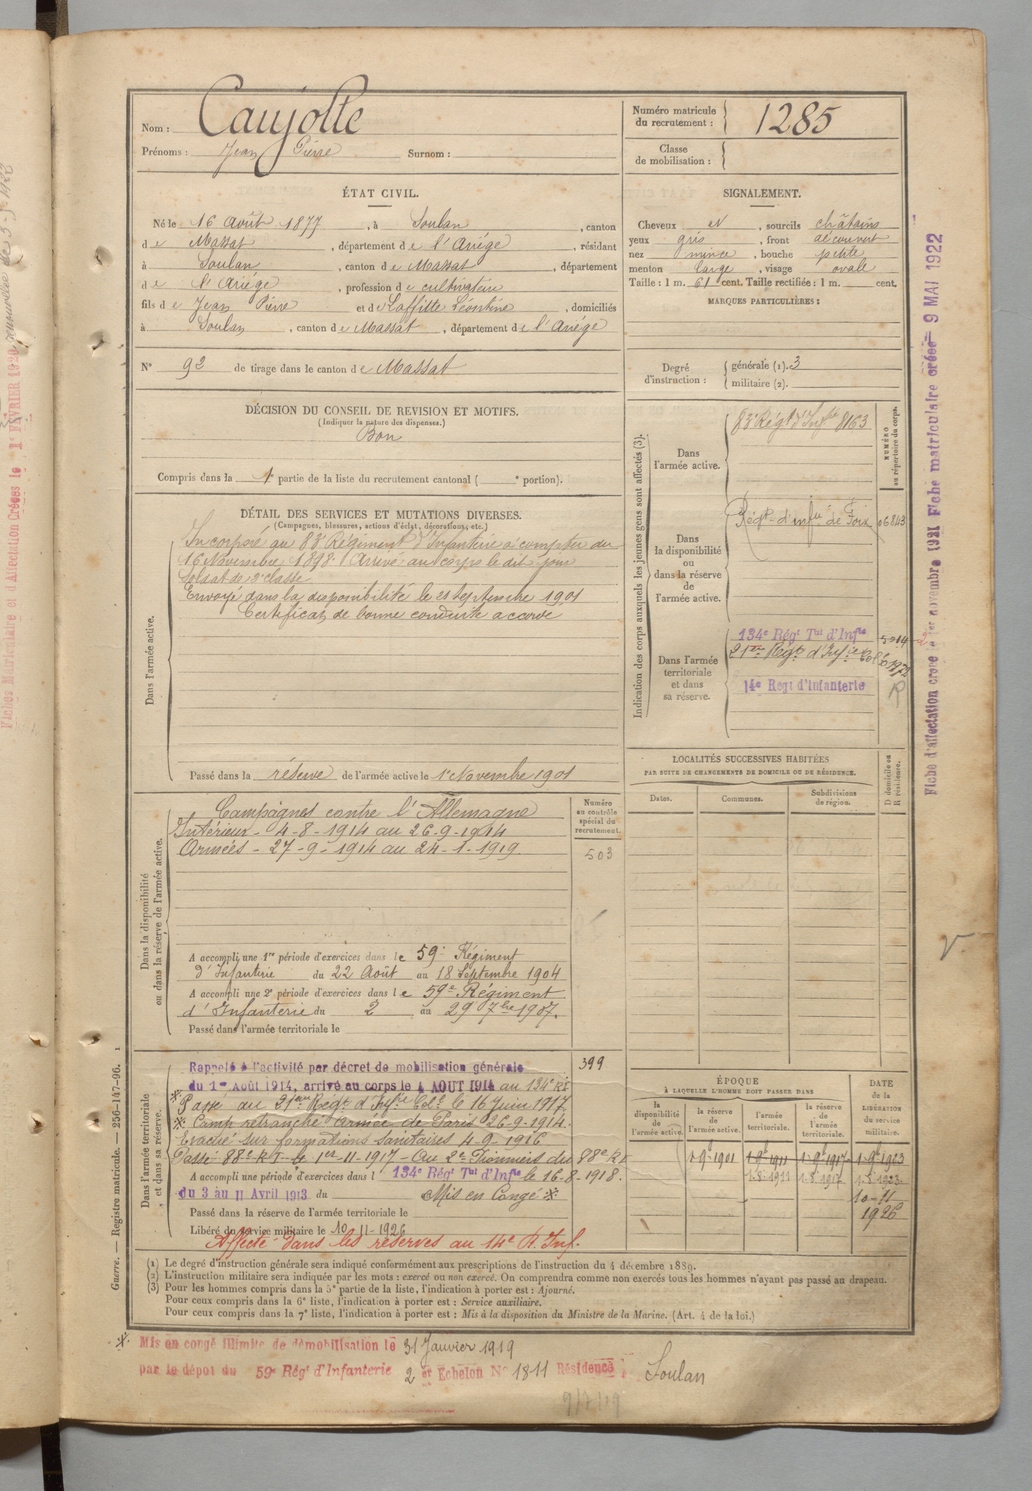 Nom : Caujolle
Prénoms : Jean Pierre Surnom :
Numéro matricule du recrutement : 1285
Classe de mobilisation :
ÉTAT CIVIL.
Né le 16 Août 1877, à Soulan, canton
de Massat, département de l'Ariège, résidant
à Soulan, canton de Massat, département
de l'Ariège, profession de cultivateur
fils de Jean Pierre et de Laffitte Léontine, domiciliés
à Soulan, canton de Massat, département de l'Ariège
N° 92 de tirage dans le canton de Massat
SIGNALEMENT.
Cheveux et, sourcils châtains
yeux gris, front découvert
nez mince, bouche petite
menton large, visage ovale
Taille : 1 m. 61 cent. Taille rectifiée : 1 m. cent.
MARQUES PARTICULIÈRES :
Degré d'instruction : générale (1). 3
militaire (2).
DÉCISION DU CONSEIL DE REVISION ET MOTIFS.
(Indiquer la nature des dispenses.)
Bon
Compris dans la 1e partie de la liste du recrutement cantonal ( e portion).
DÉTAIL DES SERVICES ET MUTATIONS DIVERSES.
(Campagnes, blessures, actions d'éclat, décorations, etc.)
Dans l'armée active.
Incorporé au 83e Régiment d'Infanterie à compter du
16 Novembre 1898. Arrivé au corps le dit jour
Soldat de 2e classe
Envoyé dans la disponibilité le 21 Septembre 1901
Certificat de bonne conduite accordé
Passé dans la réserve de l'armée active le 1r Novembre 1901
Indication des corps auxquels les jeunes gens sont affectés (3).
NUMÉRO au répertoire du corps.
Dans l'armée active.
83e Régt d'Infie 8163
Dans la disponibilité ou dans la réserve de l'armée active.
Régt d'infie de Foix 06843
Dans l'armée territoriale et dans sa réserve.
134e Régt Tal d'Infie
21me Régt d'Infie Cole
14e Régt d'Infanterie
LOCALITÉS SUCCESSIVES HABITÉES
PAR SUITE DE CHANGEMENTS DE DOMICILE OU DE RÉSIDENCE.
Dates. Communes. Subdivisions de région. D domicile ou R résidence.
Dans la disponibilité ou dans la réserve de l'armée active.
Numéro au contrôle spécial du recrutement.
503
Campagnes contre l'Allemagne
Intérieur - 4-8-1914 au 26-9-1914
Armées - 27-9-1914 au 24-1-1919
A accompli une 1re période d'exercices dans le 59e Régiment
d'Infanterie du 22 Août au 18 Septembre 1904
A accompli une 2e période d'exercices dans le 59e Régiment
d'Infanterie du 2 au 29 7bre 1907.
Passé dans l'armée territoriale le
Dans l'armée territoriale et dans sa réserve.
399
Rappelé à l'activité par décret de mobilisation générale
du 1er Août 1914, arrivé au corps le 4 AOUT 1914 au 134e RI
Passé au 21me Régt d'Infie Cole le 16 Juin 1917
* Camp retranché armée de Paris 26-9-1914.
Evacué sur formations sanitaires 4-9-1916
Passé 88e RT le 1er-11-1917 - Au 2e Pionniers du 88e RT
A accompli une période d'exercices dans l 134e Régt Tal d'Infie le 16-8-1918.
du 3 au 11 Avril 1913. du Mis en Congé *
Passé dans la réserve de l'armée territoriale le
Libéré du service militaire le 10-11-1926
Affecté dans les réserves au 14e R. Inf.
ÉPOQUE
À LAQUELLE L'HOMME DOIT PASSER DANS
la disponibilité de l'armée active. la réserve de l'armée active. l'armée territoriale. la réserve de l'armée territoriale.
DATE de la LIBÉRATION du service militaire.
1-9e 1901 1-9e 1911 1-9e 1917 1-9e 1923
1.8.1911 1.8.1917 1.8.1923
10-11
1926
(1) Le degré d'instruction générale sera indiqué conformément aux prescriptions de l'instruction du 4 décembre 1889.
(2) L'instruction militaire sera indiquée par les mots : exercé ou non exercé. On comprendra comme non exercés tous les hommes n'ayant pas passé au drapeau.
(3) Pour les hommes compris dans la 5e partie de la liste, l'indication à porter est : Ajourné.
Pour ceux compris dans la 6e liste, l'indication à porter est : Service auxiliaire.
Pour ceux compris dans la 7e liste, l'indication à porter est : Mis à la disposition du Ministre de la Marine. (Art. 4 de la loi.)
* Mis en congé illimité de démobilisation le 31 Janvier 1919
par le dépôt du 59e Régt d'Infanterie 2 et Echelon N° 1811 Résidence : Soulan
9/7/19
Guerre. — Registre matricule. — 256-147-96.
Fiche d'affectation créée le 1er novembre 1921 Fiche matriculaire créée 9 MAI 1922
Fiches Matriculaire et d'Affectation Créées le 1e FÉVRIER 1920